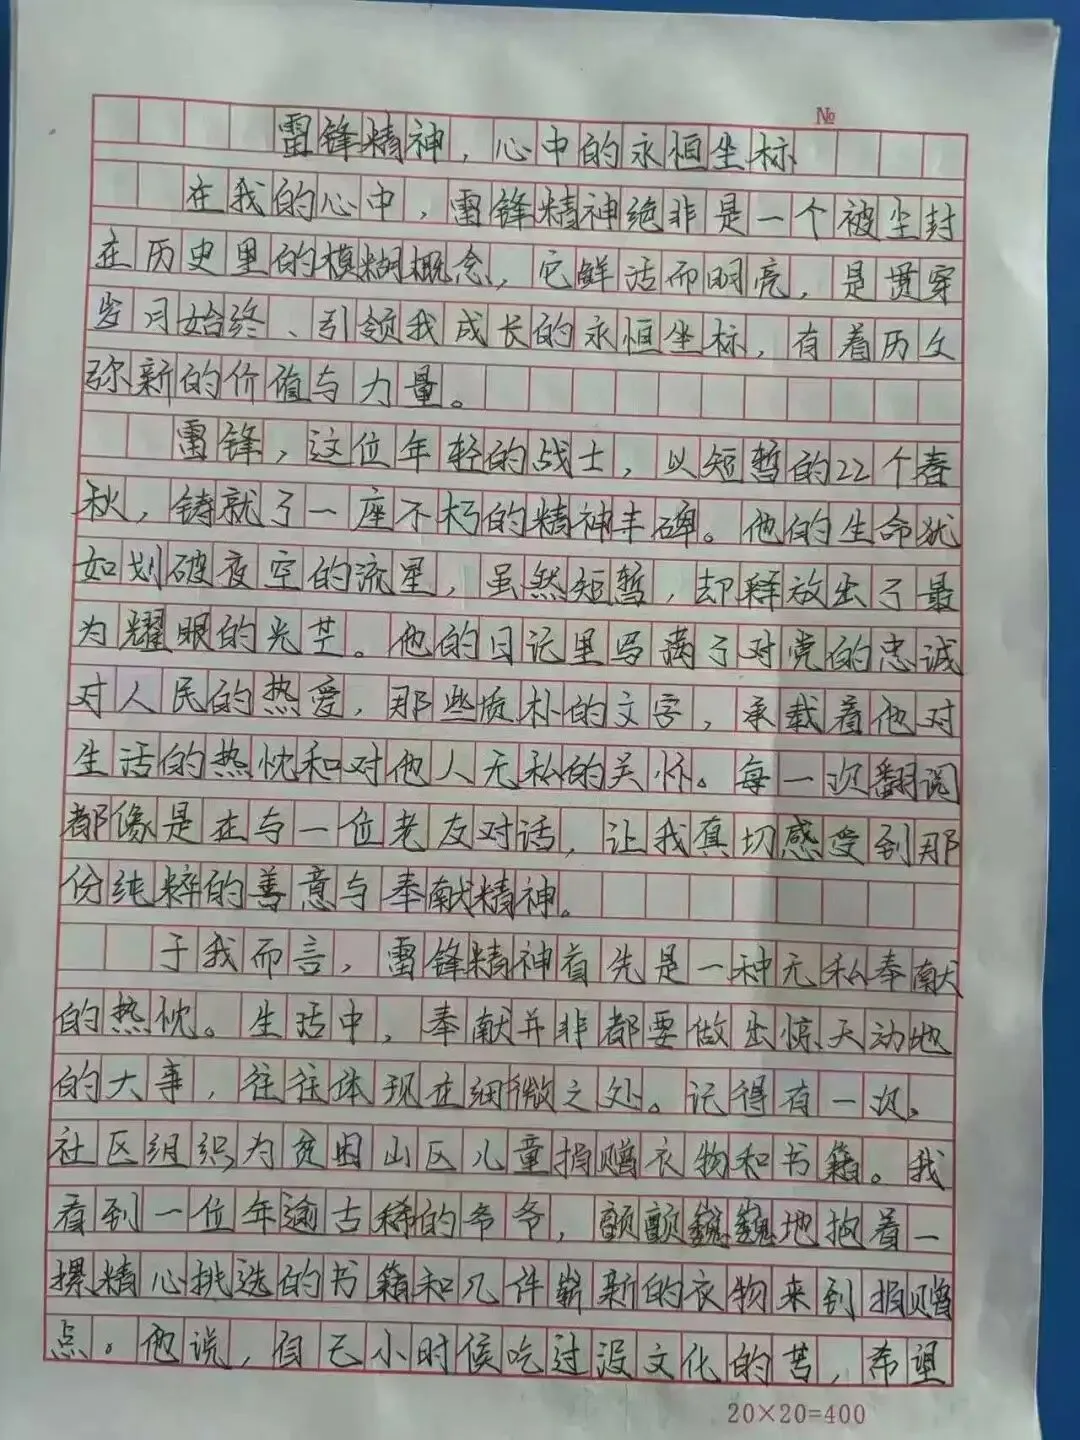 №
雷锋精神，心中的永恒坐标
在我的心中，雷锋精神绝非是一个被尘封
在历史里的模糊概念，它鲜活而明亮，是贯穿
岁月始终、引领我成长的永恒坐标，有着历久
弥新的价值与力量。
雷锋，这位年轻的战士，以短暂的22个春
秋，铸就了一座不朽的精神丰碑。他的生命犹
如划破夜空的流星，虽然短暂，却释放出了最
为耀眼的光芒。他的日记里写满了对党的忠诚
对人民的热爱，那些质朴的文字，承载着他对
生活的热忱和对他人无私的关怀。每一次翻阅
都像是在与一位老友对话，让我真切感受到那
份纯粹的善意与奉献精神。
于我而言，雷锋精神首先是一种无私奉献
的热忱。生活中，奉献并非都要做出惊天动地
的大事，往往体现在细微之处。记得有一次，
社区组织为贫困山区儿童捐赠衣物和书籍。我
看到一位年逾古稀的爷爷，颤颤巍巍地抱着一
摞精心挑选的书籍和几件崭新的衣物来到捐赠
点。他说，自己小时候吃过没文化的苦，希望
20×20=400